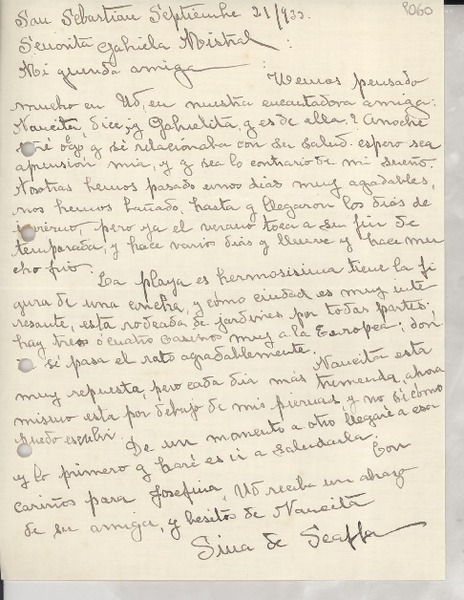 8060
San Sebastian Septiembre 21/933.
Señorita Gabriela Mistral :
Mi querida amiga
Hemos pensado
mucho en Ud, en nuestra encantadora amiga:
Naucita, dice ¿y Gabrielita, q es de ella? Anoche
algo q se relacionaba con su salud. espero sea
aprension mia, y q sea lo contrario de mi sueño.
Nosotras hemos pasado unos dias muy agradables,
nos hemos bañado, hasta q llegaron los dias de
invierno, pero ya el verano toca a su fin de
temporada, y hace varios dias q llueve y hace mu
cho frio.
La playa es hermosisima tiene la fi
gura de una concha, y como ciudad es muy inte
resante, esta rodeada de jardines por todas partes;
hay tres o cuatro casinos muy a la Europea; don
se pasa el rato agradablemente.
Naucita esta
muy repuesta, pero cada dia mas tremenda, ahora
mismo esta por debajo de mis piernas, y no sé cómo
puedo escribir.
De un momento a otro llegaré a esa
y lo primero q haré es ir a saludarla.
Con
cariños para Josefina, Ud reciba un abrazo
de su amiga, y besitos de Naucita
Sina de Scaffa